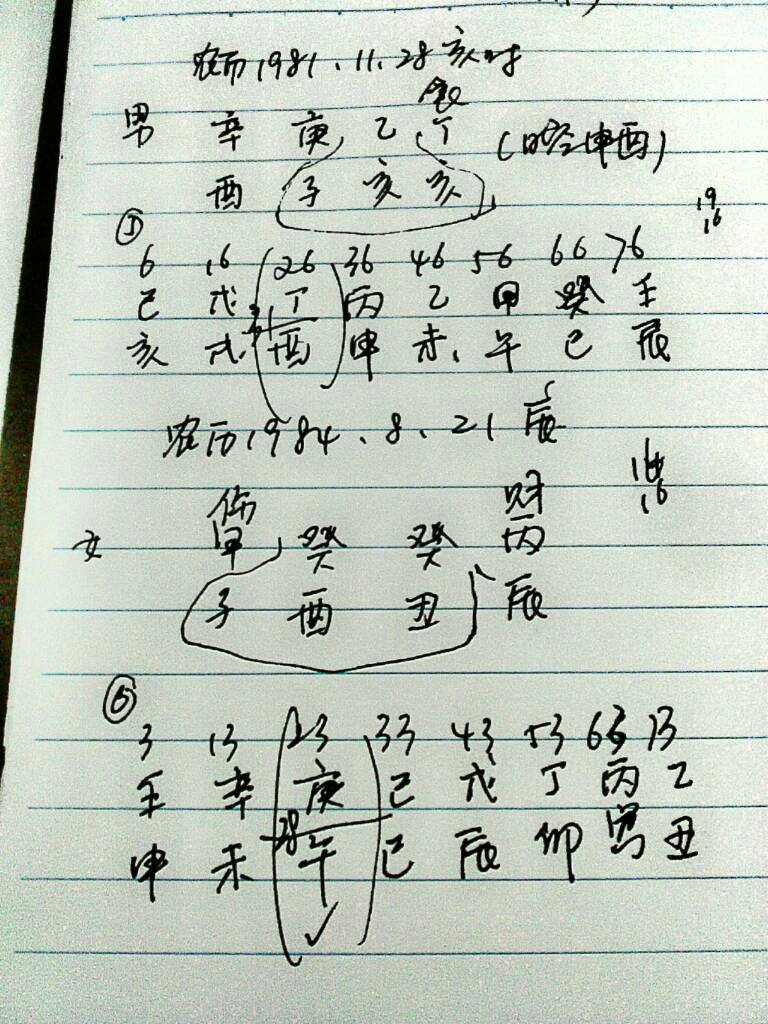 农历1981、11、28亥时
食
男 辛 庚 乙 丁 (时空申酉)
酉 子 亥 亥
19
16
①
6 16 26 36 46 56 66 76
己 戊 丁 丙 乙 甲 癸 壬
亥 戌 酉 申 未 午 巳 辰
农历1984、8、21辰
伤 财
16
女 甲 癸 癸 丙
子 酉 丑 辰
3 13 23 33 43 53 63 73
壬 辛 庚 己 戊 丁 丙 乙
28
申 未 午 巳 辰 卯 寅 丑